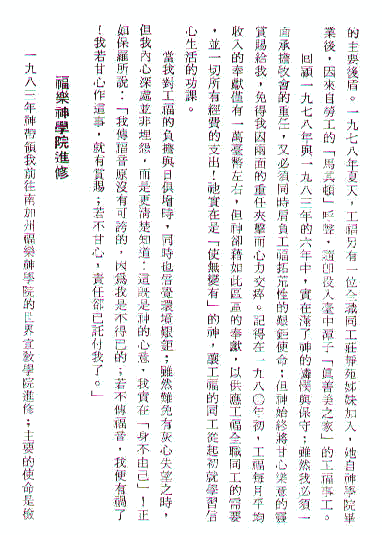 的主要後盾。一九七八年夏天，工福另有一位全職同工莊舜苑姊妹加入，她自神學院畢
業後，因來自勞工的「馬其頓」呼聲，隨即投入臺中潭子「眞善美之家」的工福事工。
回顧一九七八年與一九八三年的六年中，實在滿了神的憐憫與保守；雖然我必須一
面承擔敎會的重任，又必須同時肩負工福拓荒性的艱鉅使命；但神始終將甘心樂意的靈
賞賜給我，免得我因兩面的重任夾擊而心力交瘁。記得在一九八〇年初，工福每月平均
收入的奉獻僅有一萬臺幣左右，但神卻藉如此區區的奉獻，以供應工福全職同工的需要
，並一切所有經費的支出！祂實在是「使無變有」的神，讓工福的同工從起初就學習信
心生活的功課。
當我對工福的負擔與日俱增時，同時也倍覺環境艱鉅；雖然難免有灰心失望之時，
但我內心深處並非埋怨，而是更清楚知道：這既是神的心意，我實在「身不由己」！正
如保羅所說：「我傳福音原沒有可誇的，因爲我是不得已的；若不傳福音，我便有禍了
！我若甘心作這事，就有賞賜；若不甘心，責任卻已託付我了。」
福樂神學院進修
一九八三年神帶領我前往南加州福樂神學院的世界宣敎學院進修；主要的使命是檢